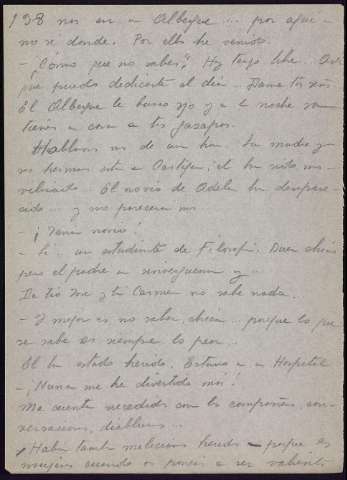 138 nos en un Albergue... por aquí
no sé donde. Por ello he venido.
- ¿Cómo que no sabes? Hoy tengo libre.
que puedo dedicarte el día... Dame tus señas
El Albergue te busco yo y a la noche
tienes en casa a tus gazapos.
Hablamos
mi hermano está en Cartagena; él ha sido mo-
vilizado. El novio de Adela ha desapare-
cido... y no parece
- ¡Tenía novio!
- Sí: un estudiante de Filosofía. Buen chico
pero el padre un sinvergüenza y...
De tío José y tía Carmen no sabe nada.
- Y mejor es no saber, chica... porque lo que
se sabe es siempre lo peor...
Él ha estado herido. Estuvo en un Hospital
- ¡Nunca me he divertido más!
Me cuenta sucedidos con los compañeros, con-
versaciones, diabluras...
¡Había también milicianas heridas - porque las
mujeres cuando os ponéis a ser valientes